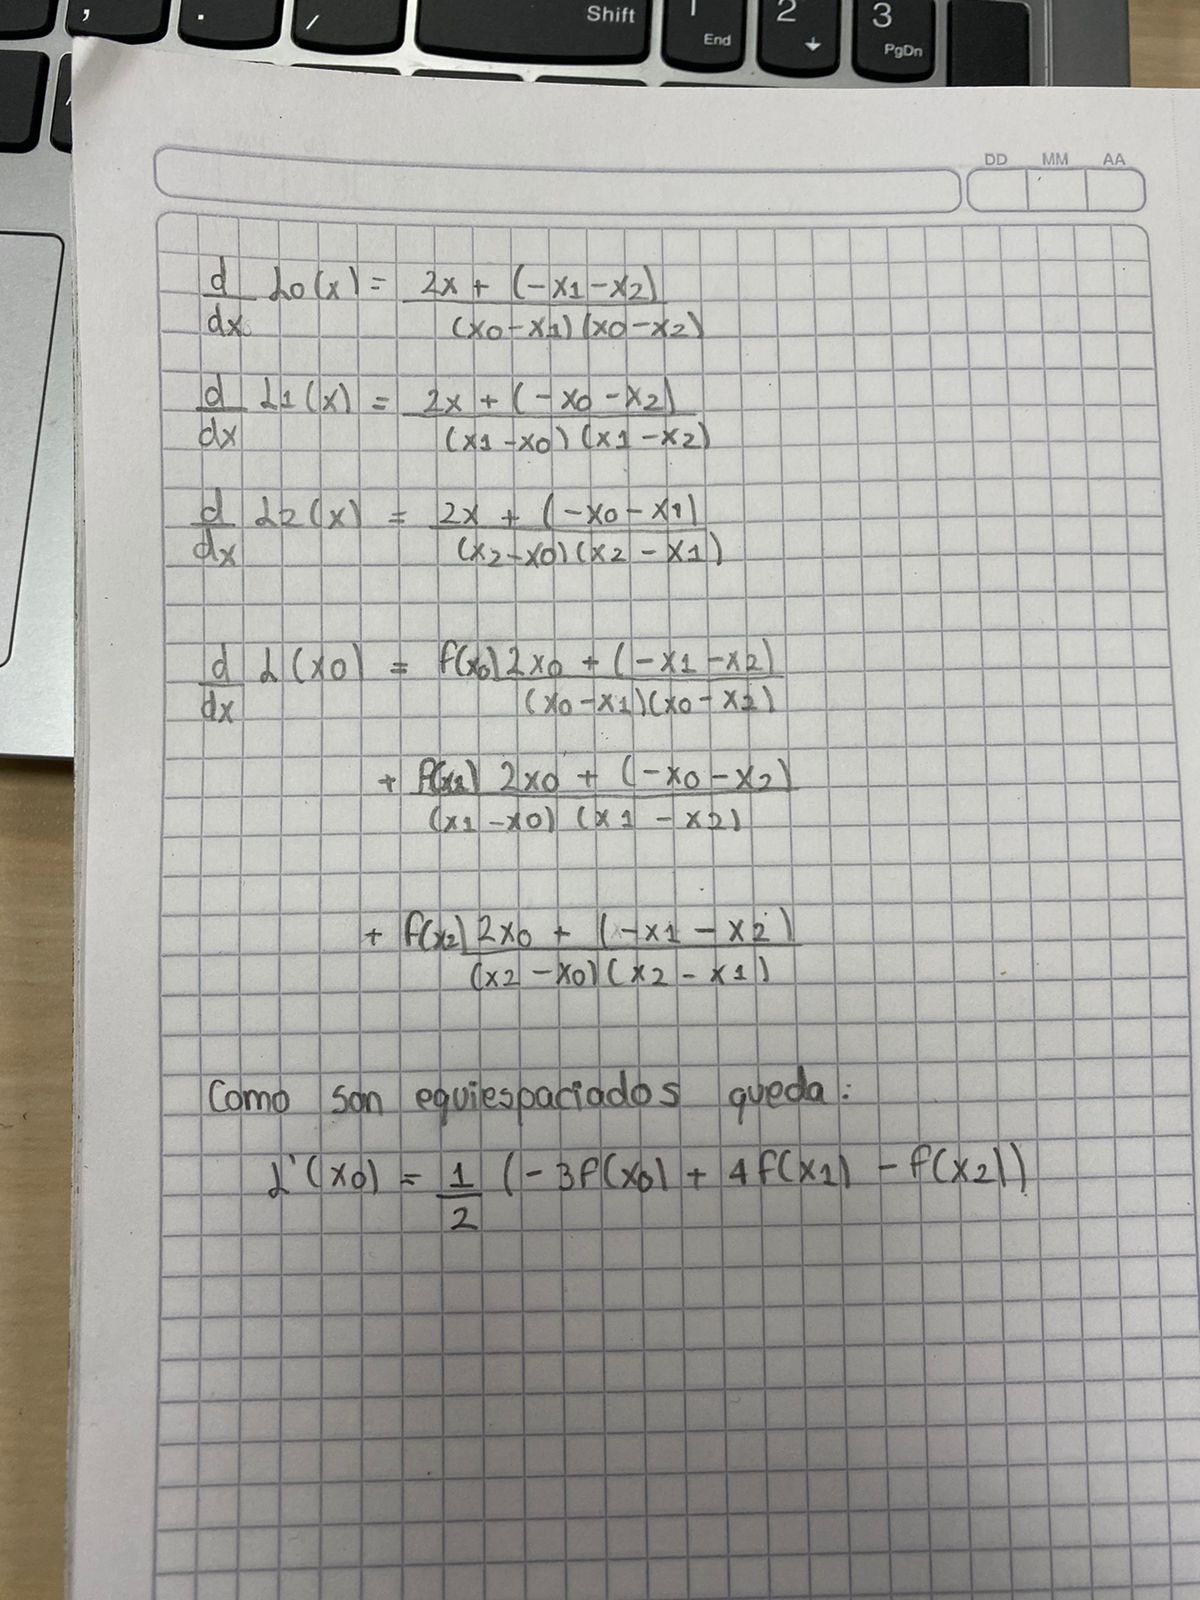 , . / Shift 1 End 2 3 PgDn
DD MM AA
d/dx L0(x) = 2x + (-x1-x2) / (x0-x1)(x0-x2)
d/dx L1(x) = 2x + (-x0-x2) / (x1-x0)(x1-x2)
d/dx L2(x) = 2x + (-x0-x1) / (x2-x0)(x2-x1)
d/dx L(x0) = f(x0) 2x0 + (-x1-x2) / (x0-x1)(x0-x2)
+ f(x1) 2x0 + (-x0-x2) / (x1-x0)(x1-x2)
+ f(x2) 2x0 + (-x1-x2) / (x2-x0)(x2-x1)
Como son equiespaciados queda:
L'(x0) = 1/2 (-3f(x0) + 4f(x1) - f(x2))